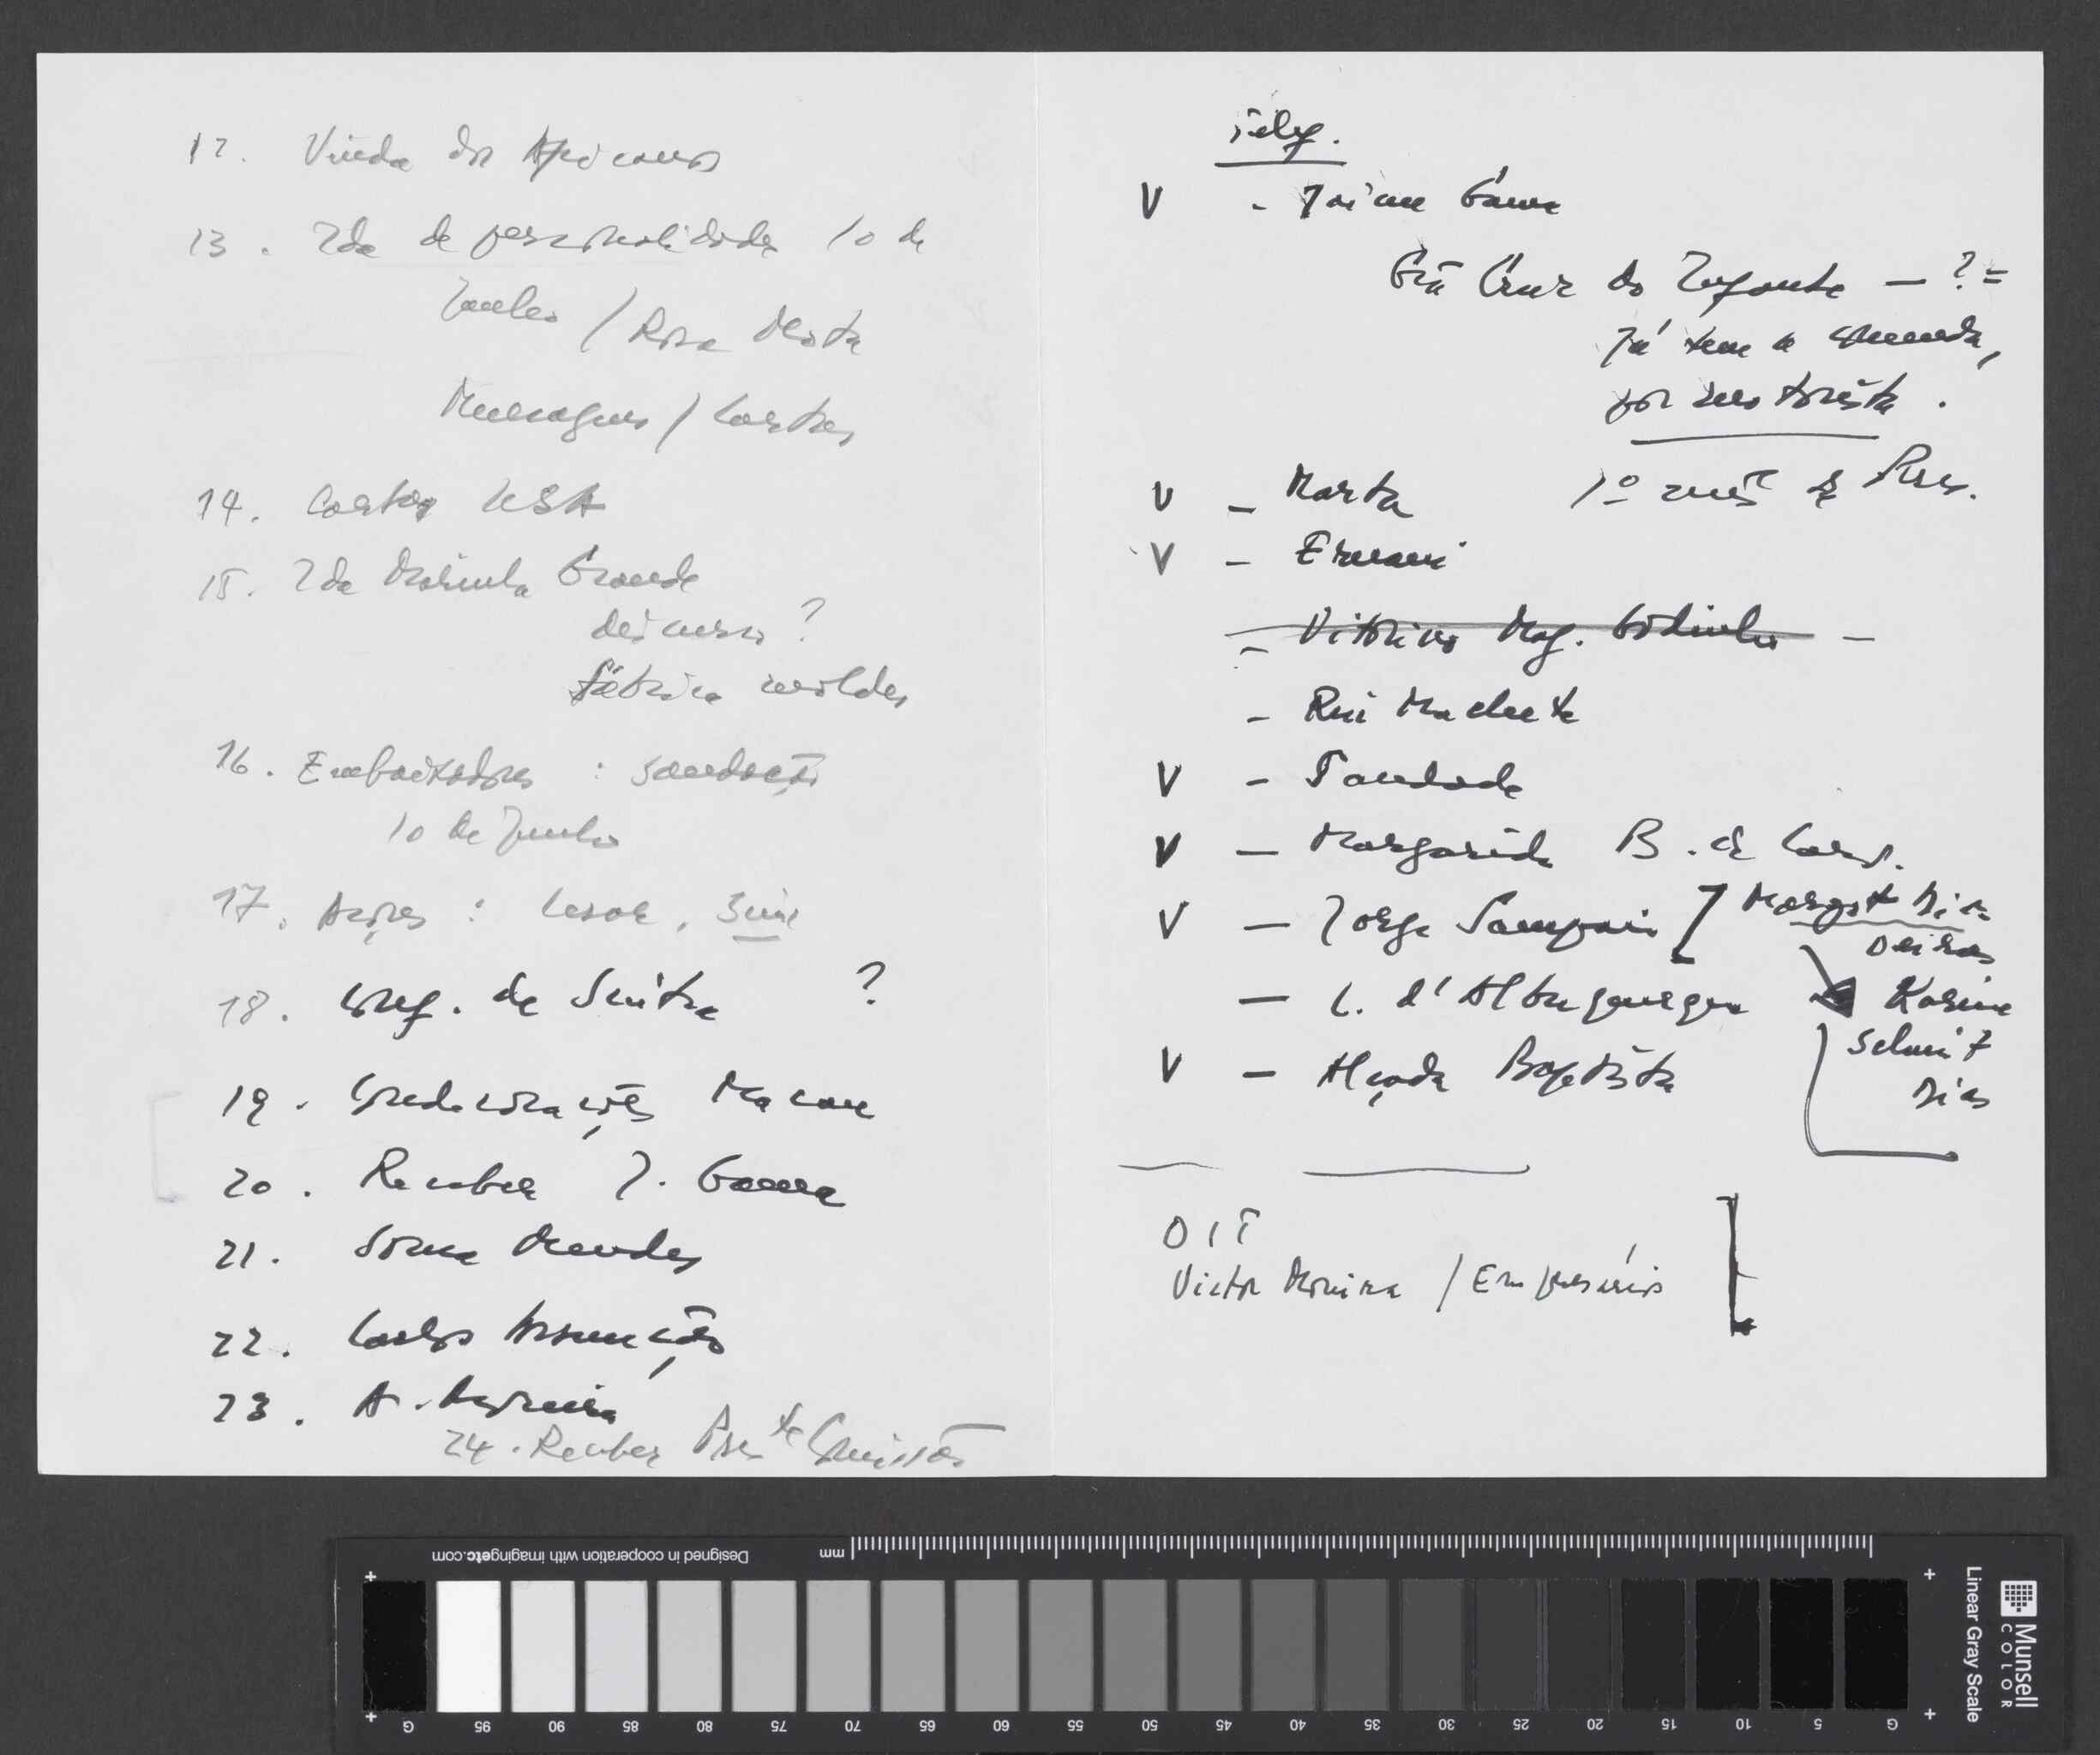 12. Vinda dos Africanos
13. Ida de personalidades 10 de
Junho / Rosa Mota
Mensagens / Cartas
14. Cartas USA
15. Ida Marinha Grande
discurso?
fábrica moldes
16. Embaixadores : saudação
10 de Junho
17. Açores : Cesar,
18. Cong. de Sintra ?
19. Condecorações Macau
20. Receber J. Gama
21. Sousa Mendes
22. Carlos Assunção
23. A.
24. Receber Pres te Comissão
Telef.
V - Jaime Gama
Grã Cruz do Infante - ? =
Já tem a comenda,
V - Marta 1º mês de Pres.
V - Ernani
- Vitorino Mag. Godinho -
- Rui Machete
V - Trindade
V - Margarida B. de Carv.
V - Jorge Sampaio [ Margot Dias
Oeiras
- L. d'Albuquerque Karin
Schmit
V - Alçada Baptista
Dias
OIT
Victor Moreira / Empresários
Designed in cooperation with imagingetc.com
mm
G 95 90 85 80 75 70 65 60 55 50 45 40 35 30 25 20 15 10 5 G
Linear Gray Scale
Munsell
COLOR